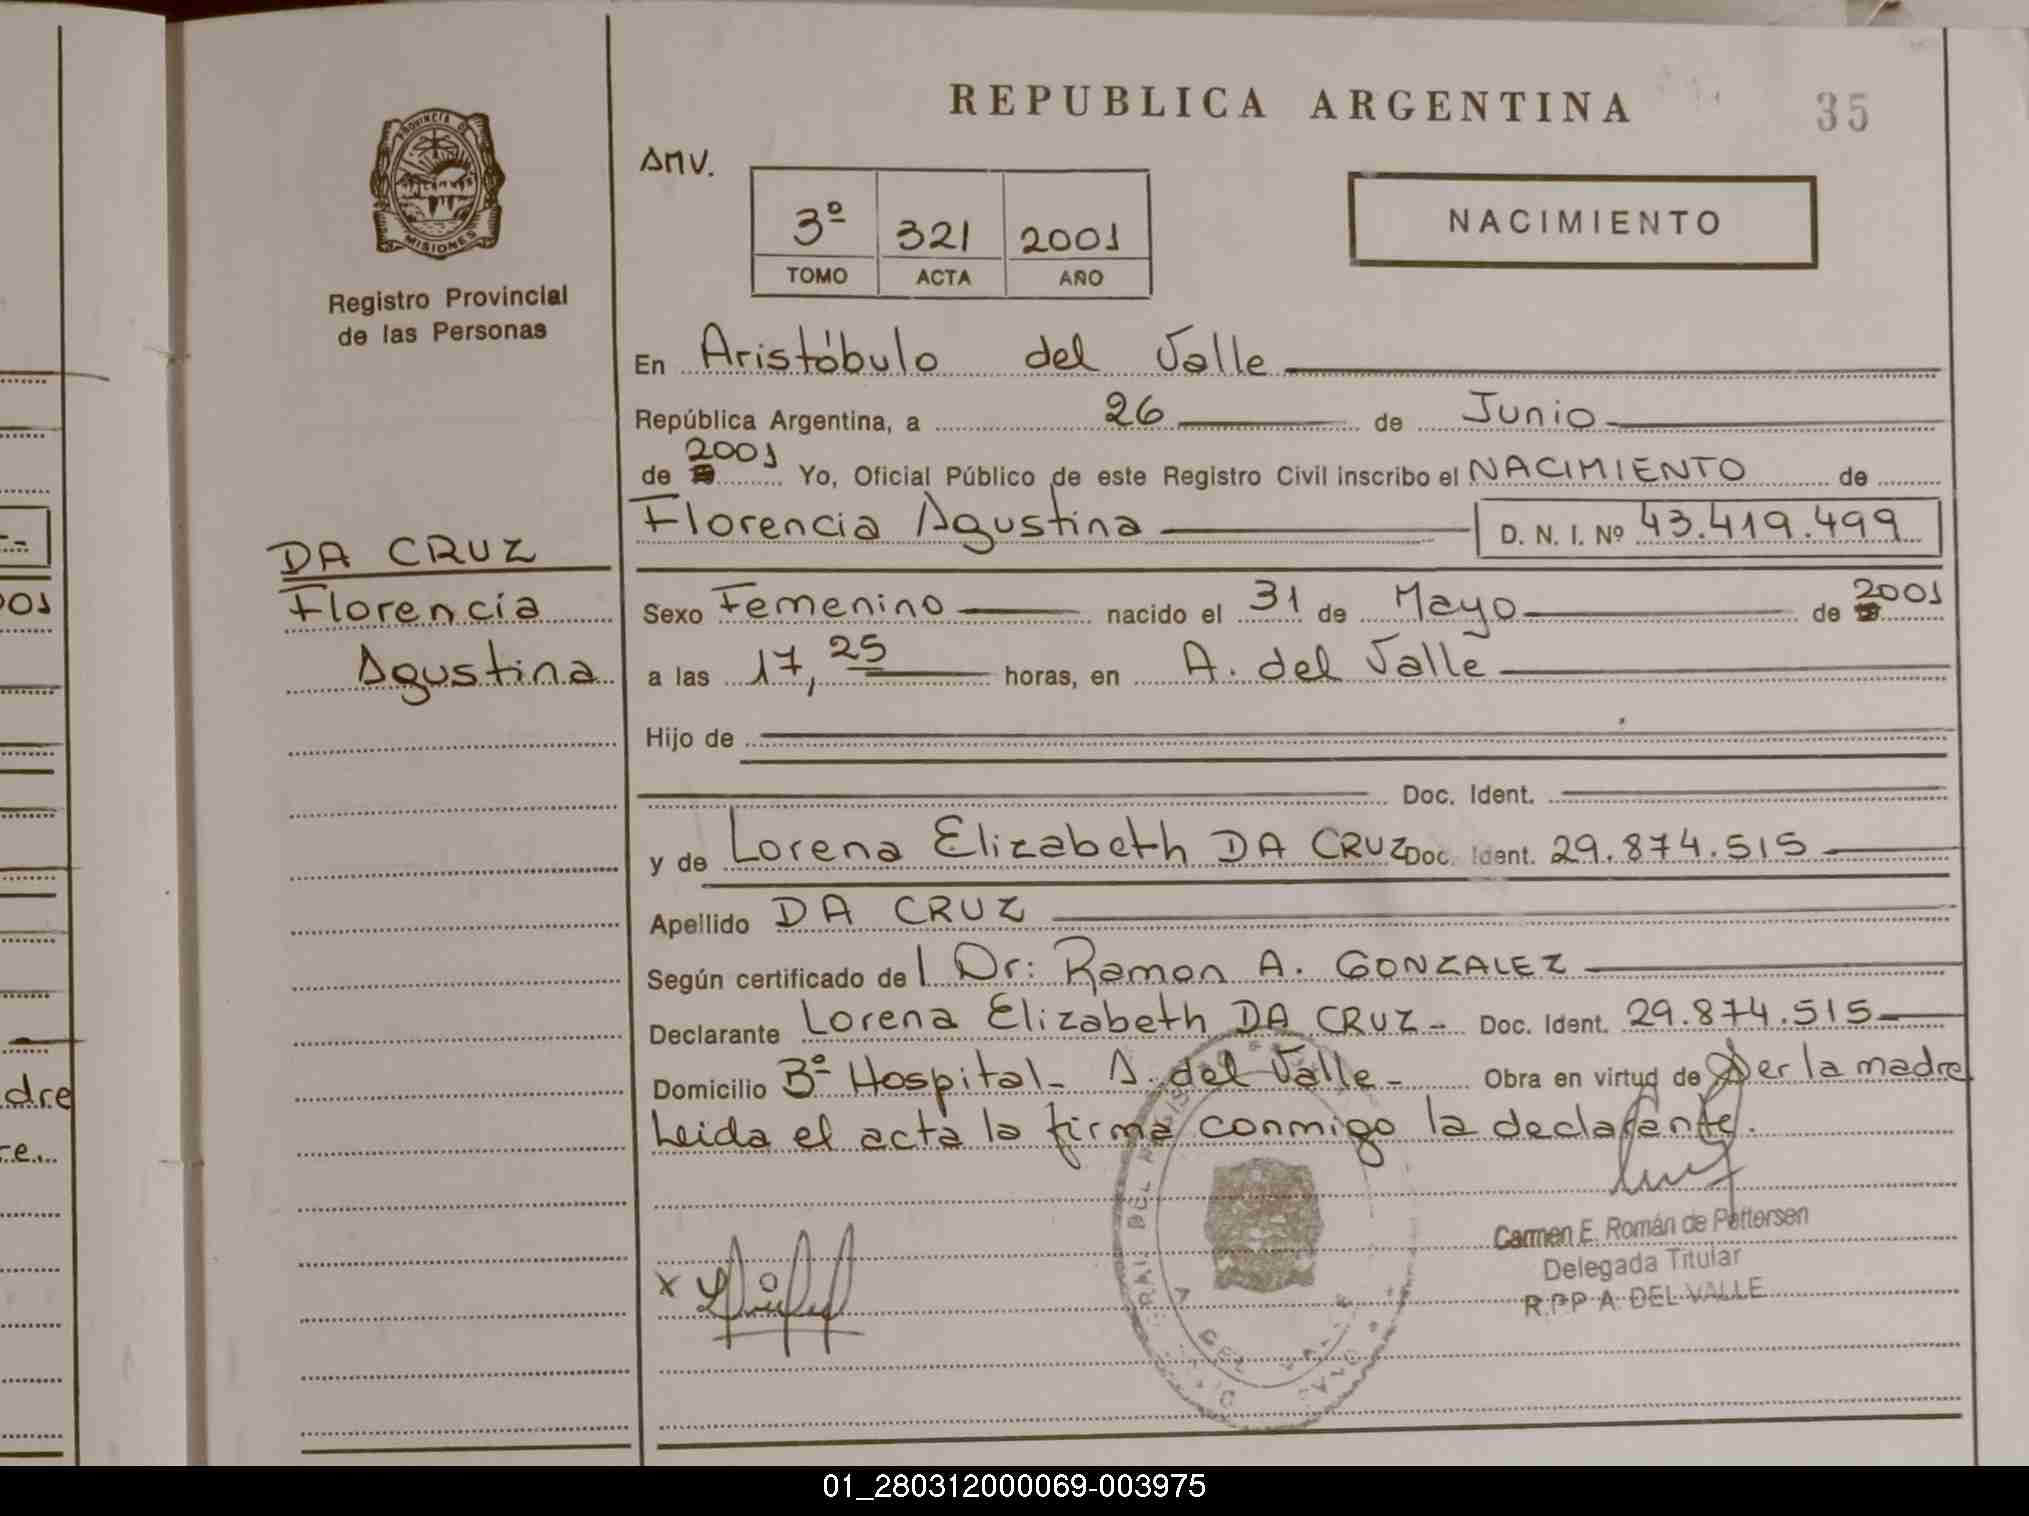 REPUBLICA ARGENTINA
35
PROVINCIA DE
MISIONES
Registro Provincial
de las Personas
AMV.
3º 321 2001
TOMO ACTA AÑO
NACIMIENTO
En Aristóbulo del Valle
República Argentina, a 26 de Junio
de 2001 Yo, Oficial Público de este Registro Civil inscribo el NACIMIENTO de
Florencia Agustina D. N. I. Nº 43.419.499
DA CRUZ
Florencia
Agustina
Sexo Femenino nacido el 31 de Mayo de 2001
a las 17,25 horas, en A. del Valle
Hijo de
Doc. Ident.
y de Lorena Elizabeth DA CRUZ Doc. Ident. 29.874.515
Apellido DA CRUZ
Según certificado del Dr: Ramon A. GONZALEZ
Declarante Lorena Elizabeth DA CRUZ - Doc. Ident. 29.874.515
Domicilio Bº Hospital - A. del Valle - Obra en virtud de Ser la madre
Leida el acta la firma conmigo la declarante.
Carmen E. Román de Pettersen
Delegada Titular
R.P.P A. DEL VALLE
X
A. DEL VALLE
001
adre
re.
01_280312000069-003975